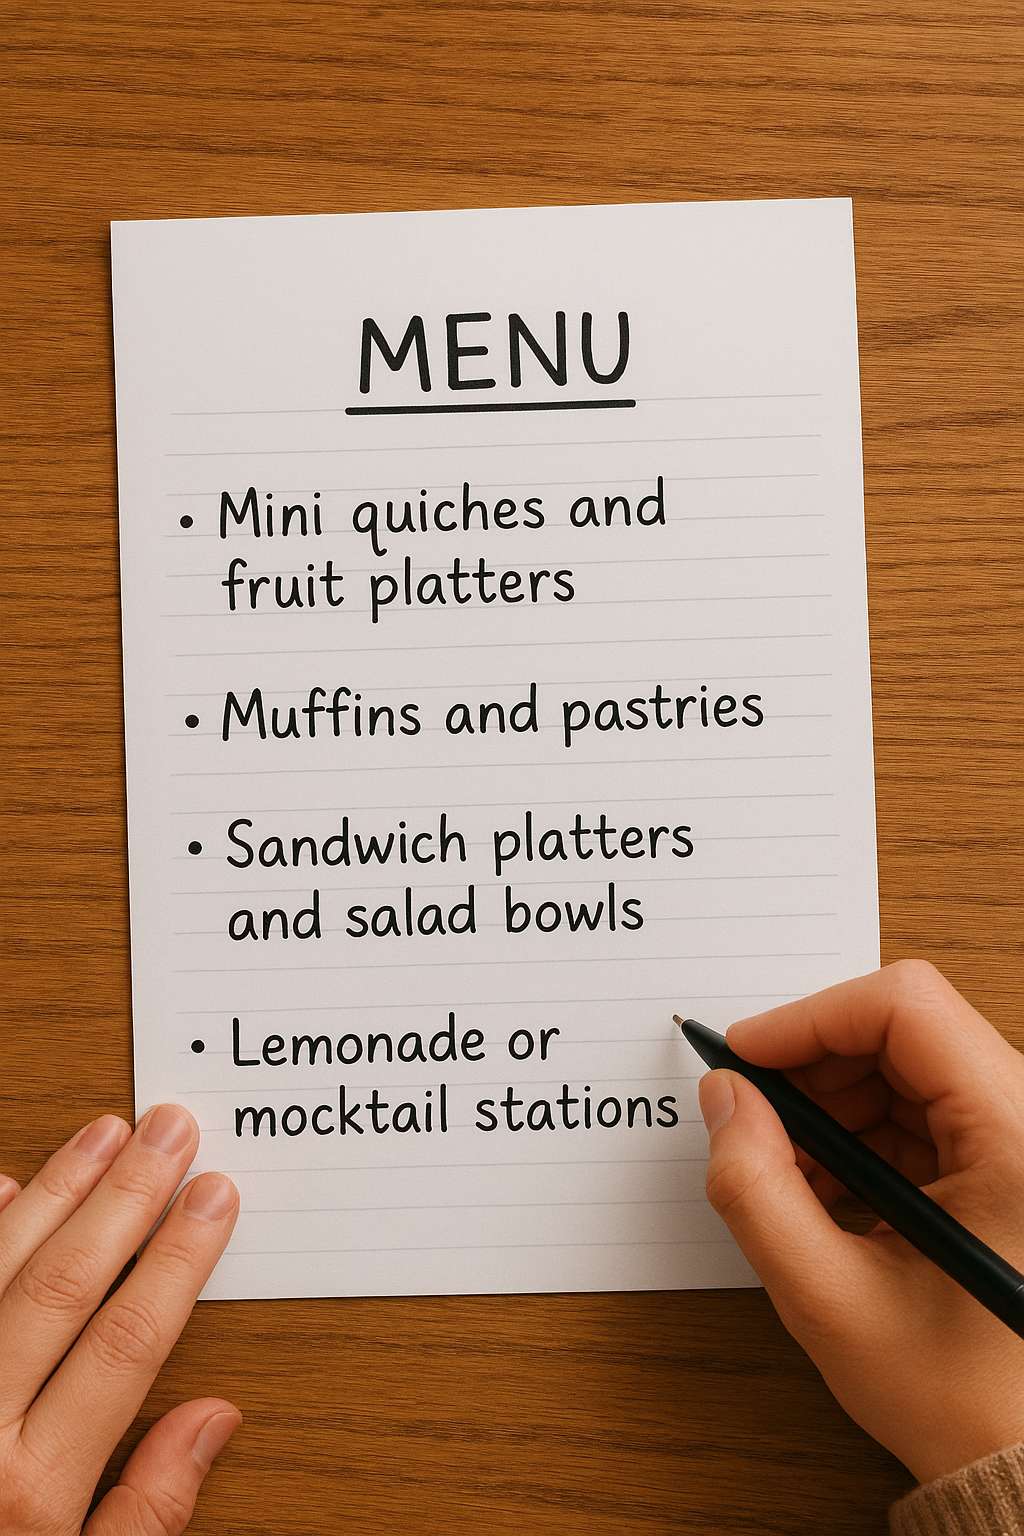 MENU
• Mini quiches and
fruit platters
• Muffins and pastries
• Sandwich platters
and salad bowls
• Lemonade or
mocktail stations